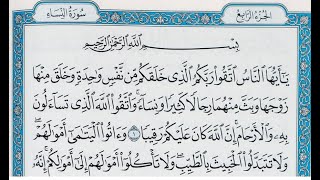 الجزء الرابع
سورة النساء
بِسْمِ اللَّهِ الرَّحْمَٰنِ الرَّحِيمِ
يَٰٓأَيُّهَا ٱلنَّاسُ ٱتَّقُوا۟ رَبَّكُمُ ٱلَّذِى خَلَقَكُم مِّن نَّفْسٍ وَٰحِدَةٍ وَخَلَقَ مِنْهَا
زَوْجَهَا وَبَثَّ مِنْهُمَا رِجَالًا كَثِيرًا وَنِسَآءً وَٱتَّقُوا۟ ٱللَّهَ ٱلَّذِى تَسَآءَلُونَ
بِهِۦ وَٱلْأَرْحَامَ إِنَّ ٱللَّهَ كَانَ عَلَيْكُمْ رَقِيبًا ١ وَءَاتُوا۟ ٱلْيَتَٰمَىٰٓ أَمْوَٰلَهُمْ
وَلَا تَتَبَدَّلُوا۟ ٱلْخَبِيثَ بِٱلطَّيِّبِ وَلَا تَأْكُلُوٓا۟ أَمْوَٰلَهُمْ إِلَىٰٓ أَمْوَٰلِكُمْ إِنَّهُۥ